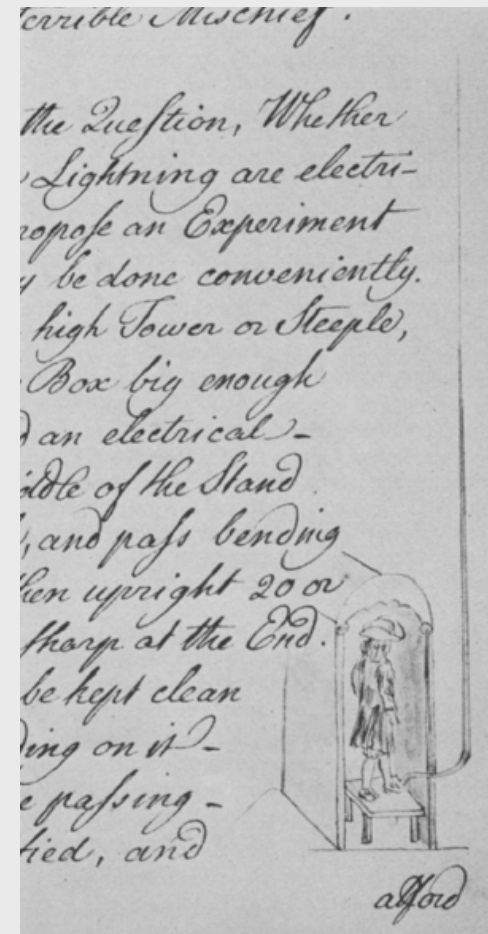 terrible Mischief.
the Queſtion, Whether
Lightning are electri-
ropoſe an Experiment
y be done conveniently.
high Tower or Steeple,
Box big enough
d an electrical -
iddle of the Stand
, and paſs bending
hen upright 20 or
ſharp at the End.
be kept clean
ding on it -
e paſsing -
fied, and
afford